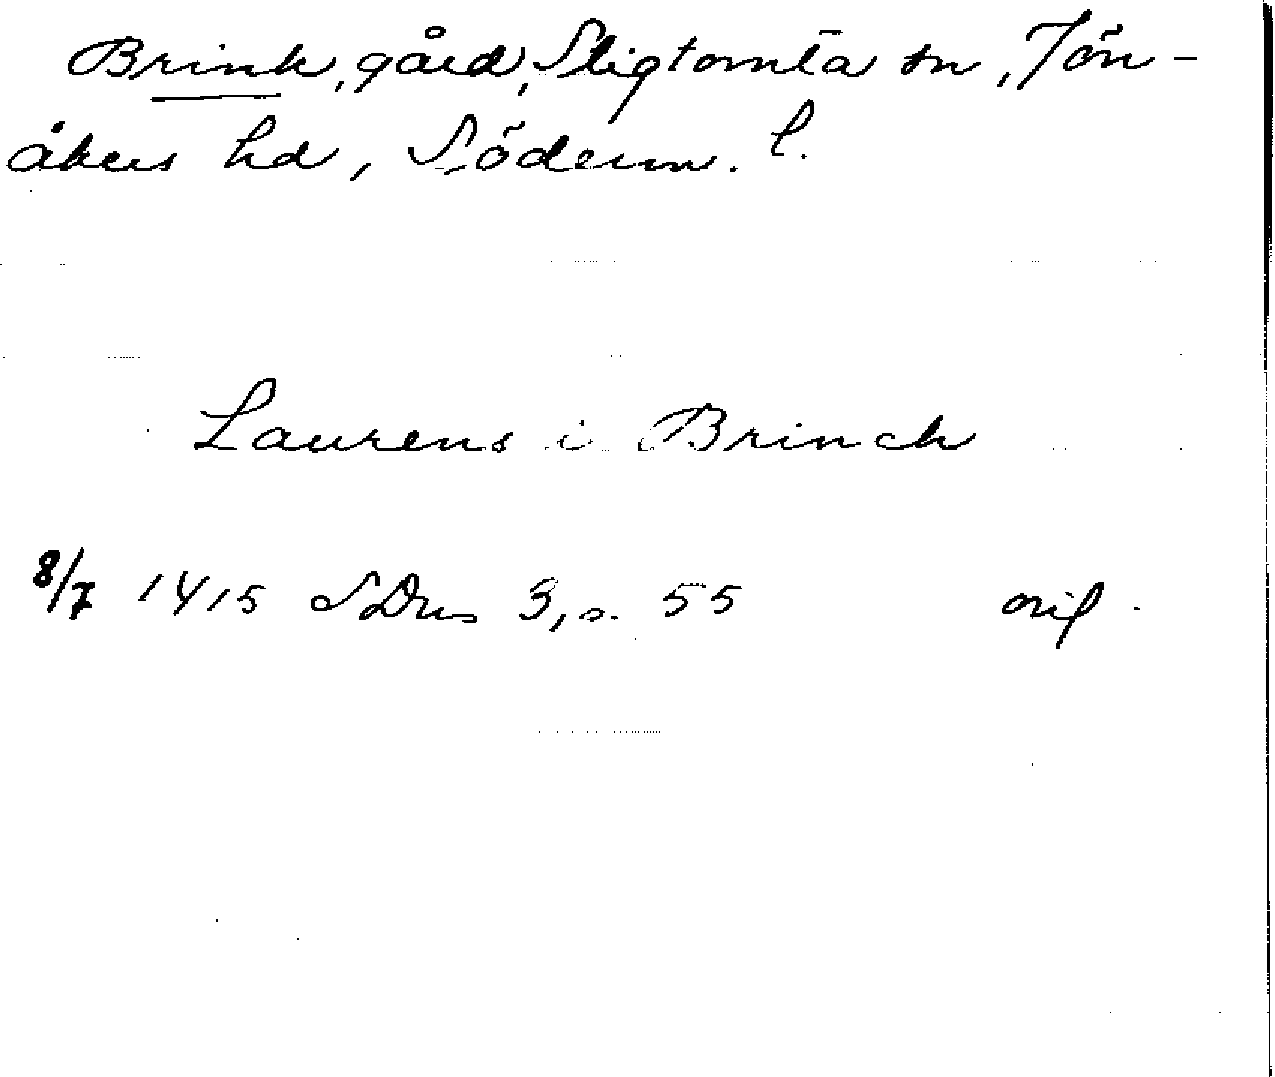 Brink, gård, Sligtomta sn, Jön-
åkers hd, Söderm. l.
Laurens i Brinck
8/7 1415 SDns 3, s. 55 orig.